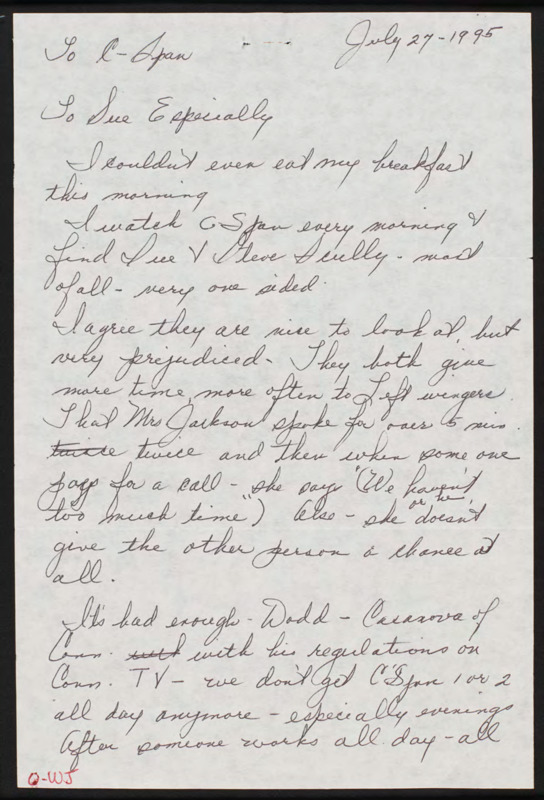 To C-Span
July 27-1995
To Sue Especially
I couldn't even eat my breakfast
this morning
I watch C Span every morning &
find Sue & Steve Scully - most
of all - very one sided.
I agree they are nice to look at, but
very prejudiced - They both give
more time, more often to Left wingers.
That Mrs Jackson spoke for over 5 min.
twice twice and then when some one
pays for a call - she says "(We haven't
too much time") Also - she or he, doesn't
give the other person a chance at
all.
It's bad enough - Dodd - Casanova of
Conn. with his regulations on
Conn. TV - we don't get C Span 1 or 2
all day anymore - especially evenings
After someone works all day - all
O-WJ